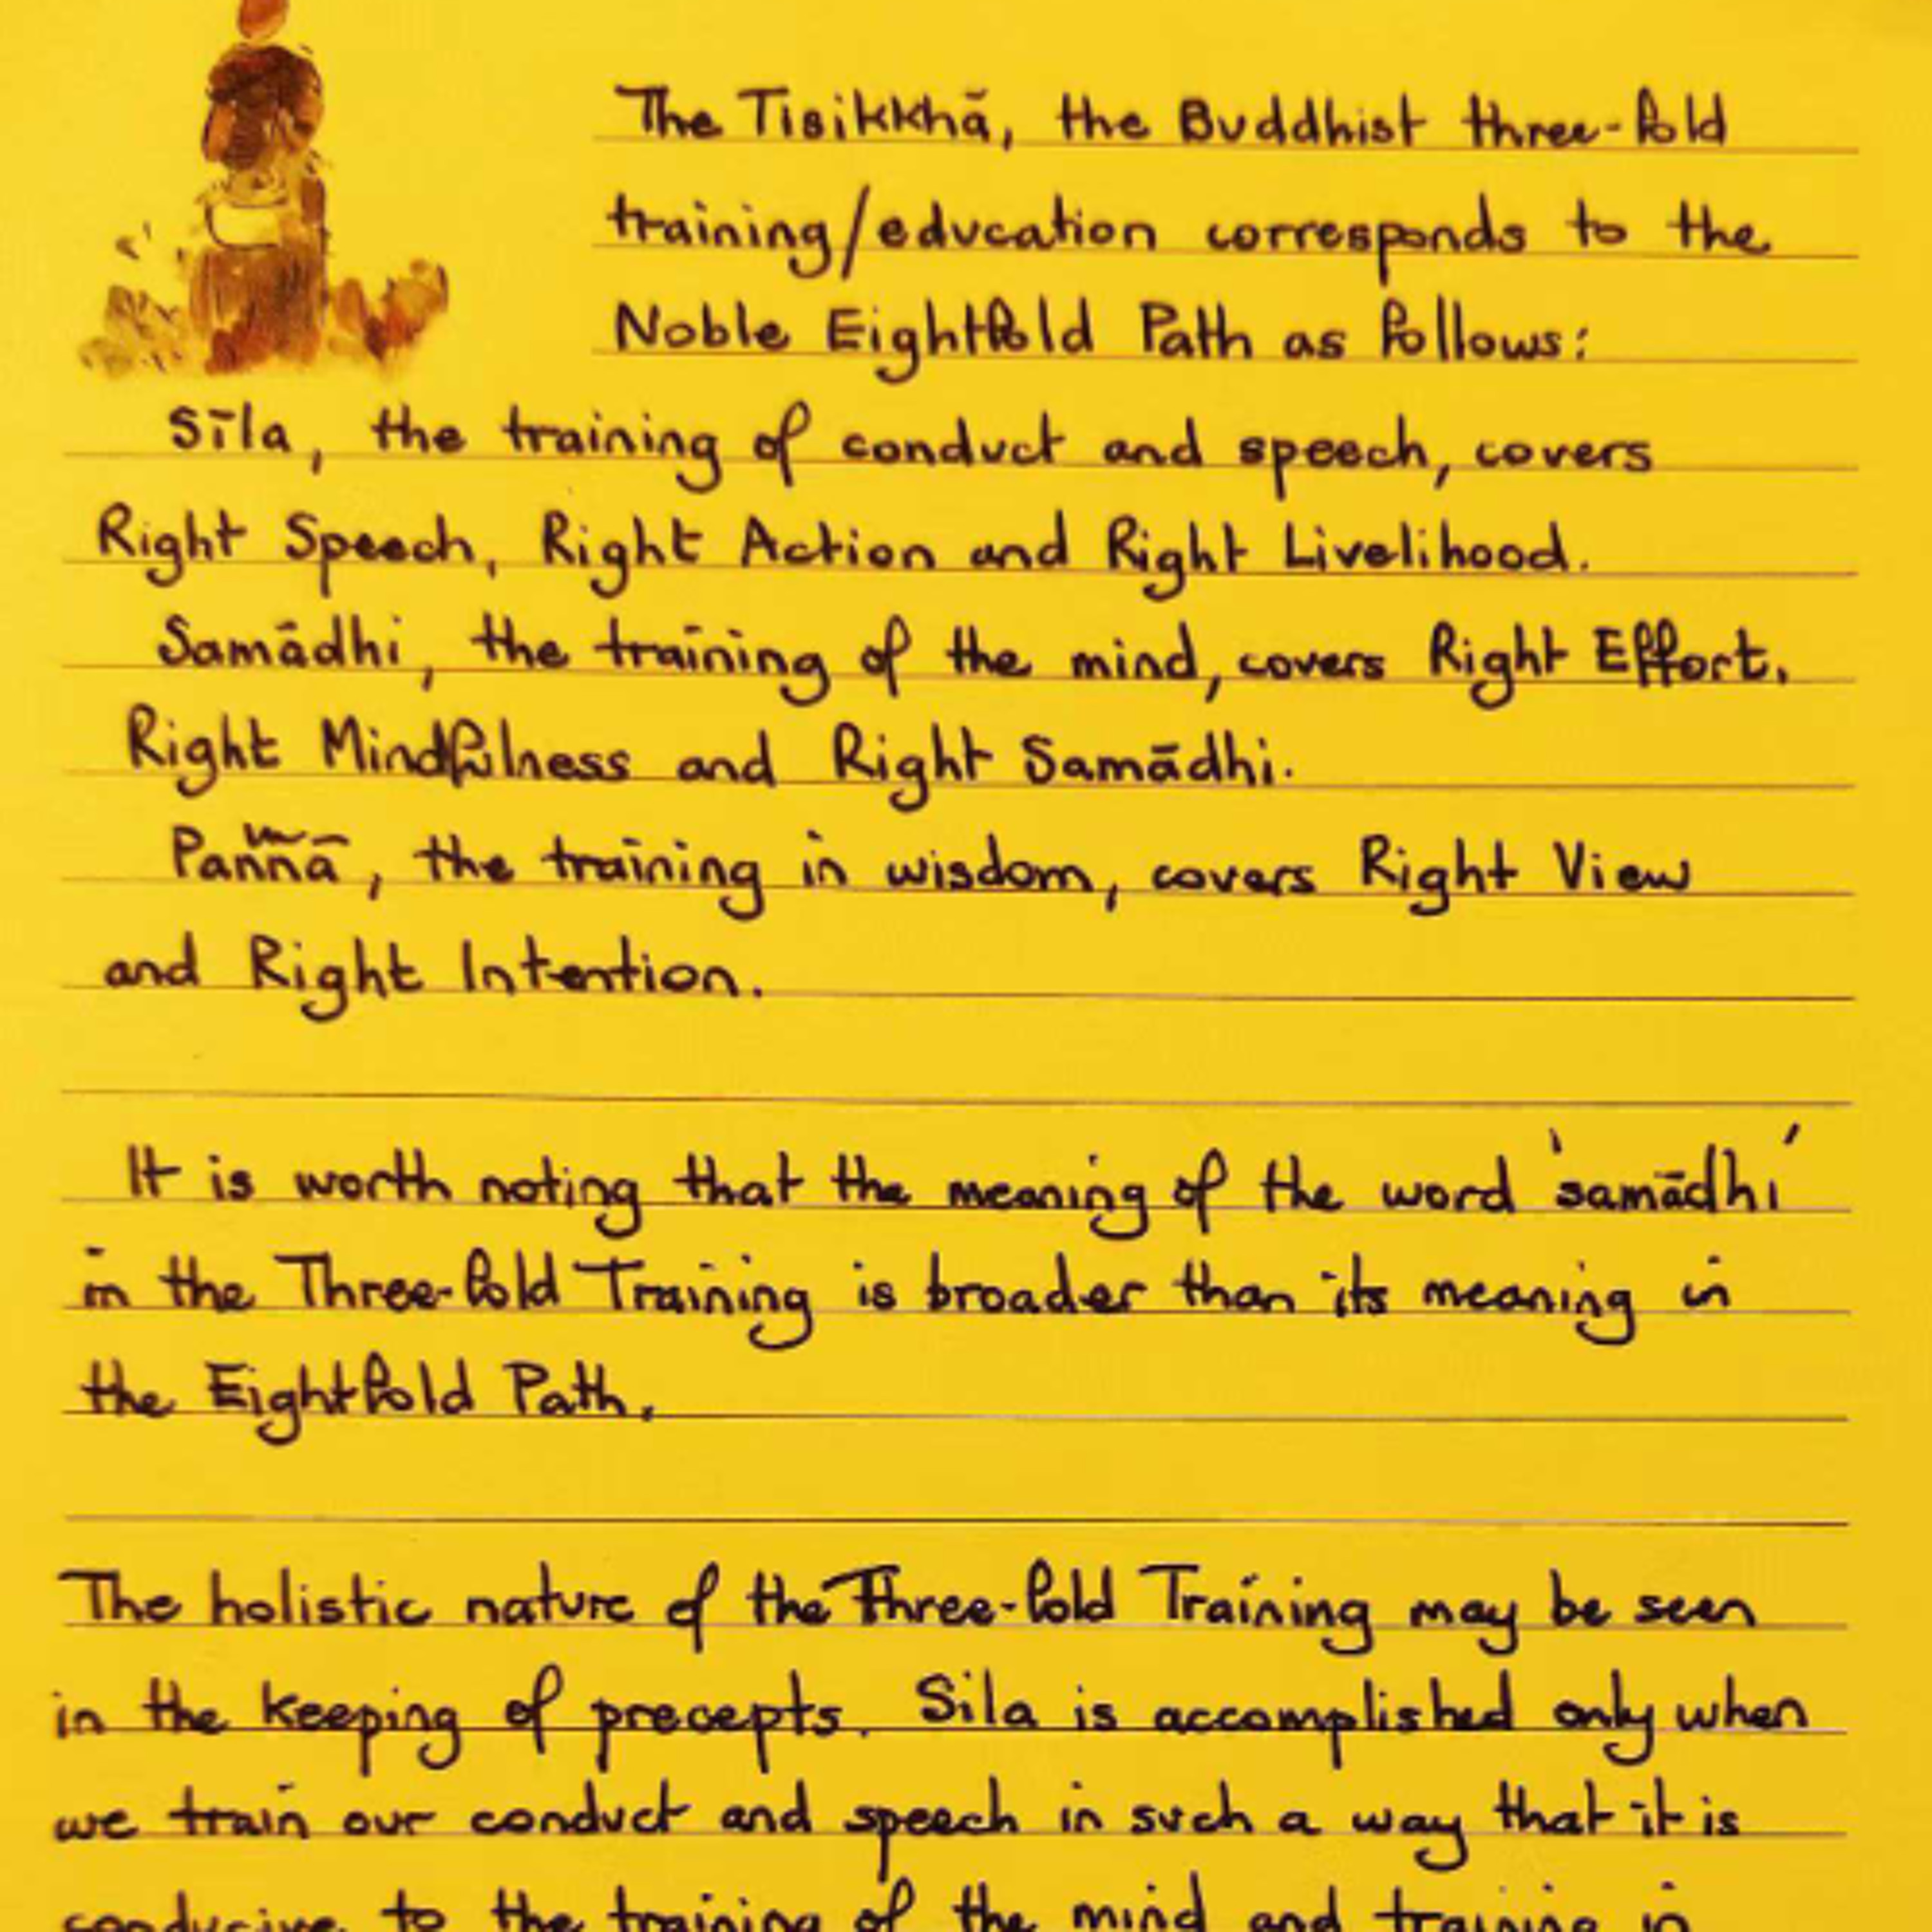 The Tisikkhā, the Buddhist three-fold
training/education corresponds to the
Noble Eightfold Path as follows:
Sīla, the training of conduct and speech, covers
Right Speech, Right Action and Right Livelihood.
Samādhi, the training of the mind, covers Right Effort,
Right Mindfulness and Right Samādhi.
Paññā, the training in wisdom, covers Right View
and Right Intention.
It is worth noting that the meaning of the word 'samādhi'
in the Three-fold Training is broader than its meaning in
the Eightfold Path.
The holistic nature of the Three-fold Training may be seen
in the keeping of precepts. Sila is accomplished only when
we train our conduct and speech in such a way that it is
conducive to the training of the mind and training in